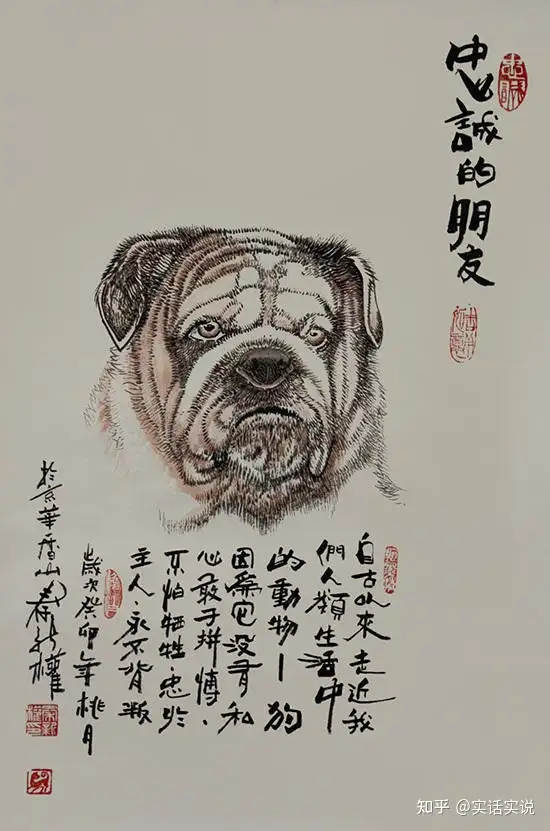 忠誠的朋友
自古以來走近我
們人類生活中
的動物—狗
因爲它没有私
心敢于拼搏、
不怕牺牲、忠於
主人、永不背叛
歲次癸卯年桃月
於京華香山
知乎 @实话实说